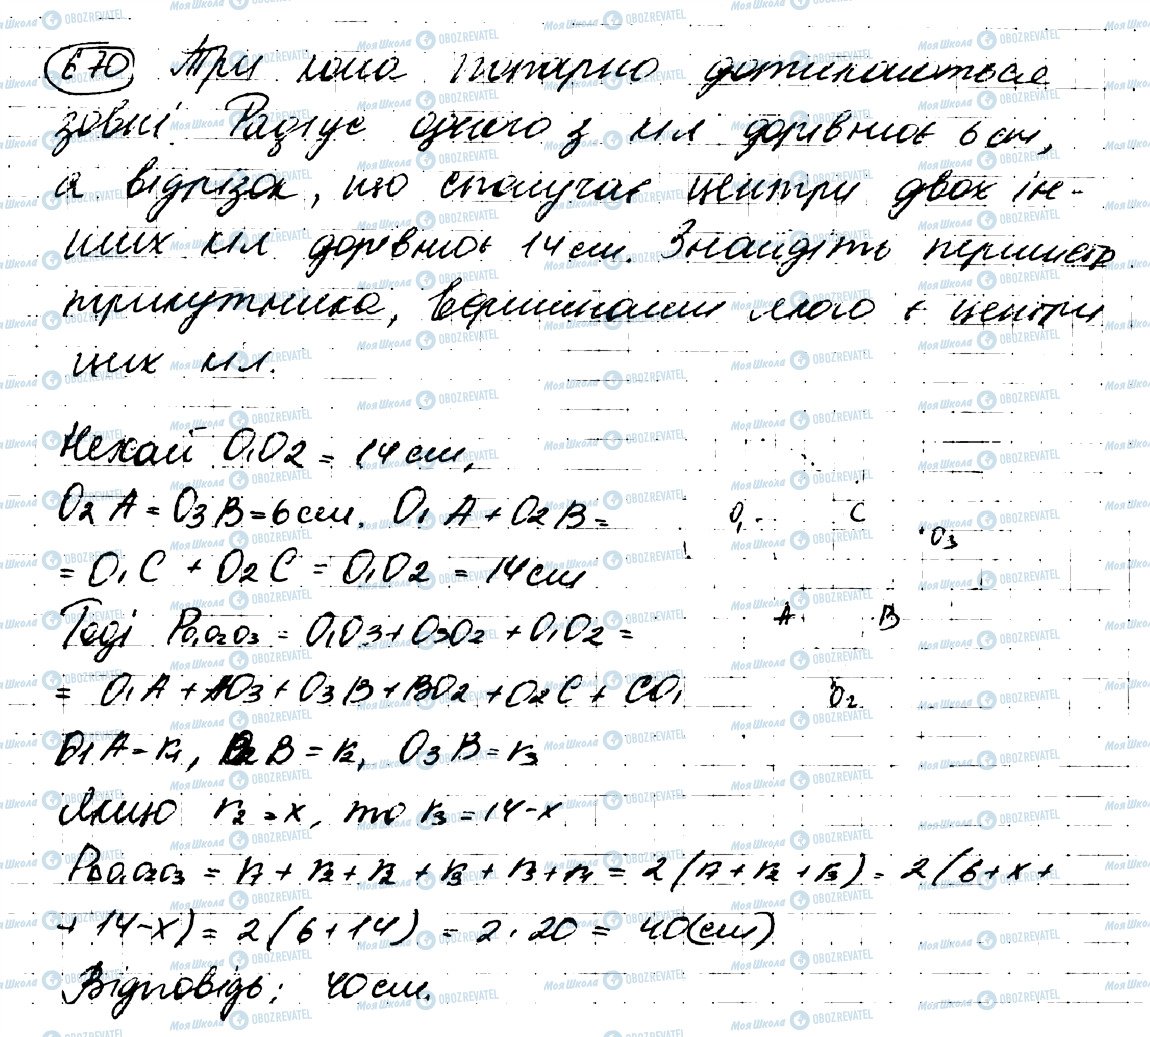 670 Три кола попарно дотикаються
зовні. Радіус одного з кіл дорівнює 6 см,
а відрізок, що сполучає центри двох ін-
ших кіл дорівнює 14 см. Знайдіть периметр
трикутника, вершинами якого є центри
цих кіл.
Нехай O₁O₂ = 14 см,
O₂A = O₃B = 6 см. O₁A + O₂B =
= O₁C + O₂C = O₁O₂ = 14 см
Тоді P₀₁₀₂₀₃ = O₁O₃ + O₃O₂ + O₁O₂ =
= O₁A + AO₃ + O₃B + BO₂ + O₂C + CO₁
O₁A = r₁, O₂B = r₂, O₃B = r₃
Якщо r₂ = x, то r₃ = 14 - x
P△O₁O₂O₃ = r₁ + r₂ + r₂ + r₃ + r₃ + r₁ = 2(r₁ + r₂ + r₃) = 2(6 + x +
+ 14 - x) = 2(6 + 14) = 2 · 20 = 40 (см)
Відповідь: 40 см.
O₁
C
O₃
A
B
O₂
МояШкола OBOZREVATEL